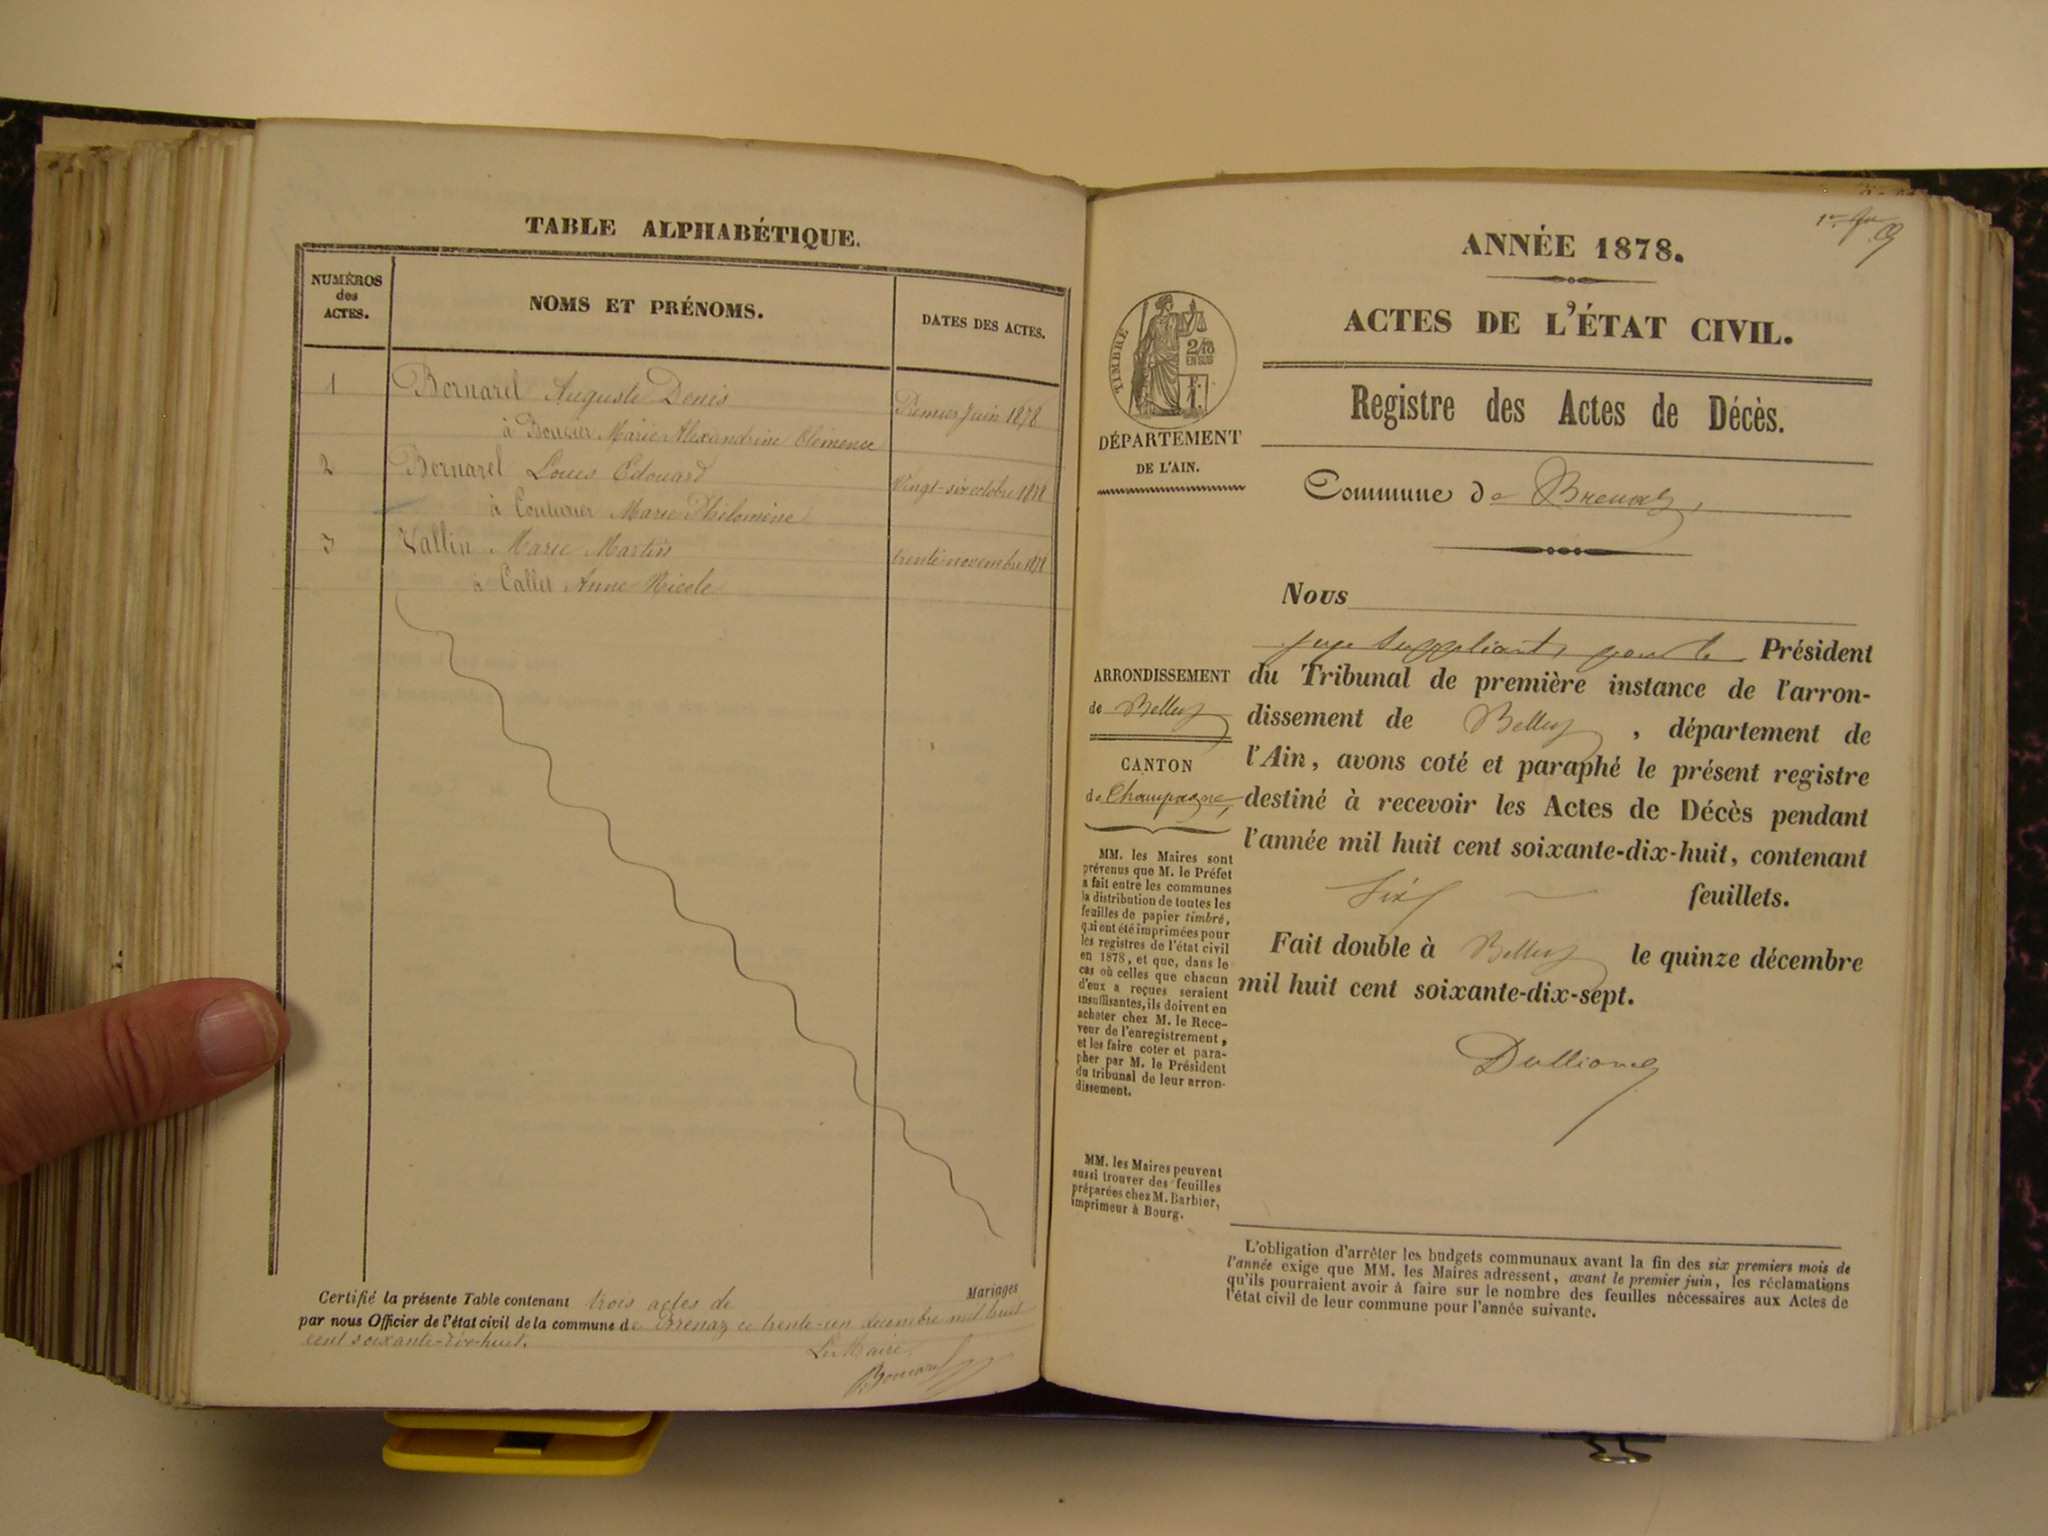 TABLE ALPHABÉTIQUE.
NUMÉROS
des
ACTES.
NOMS ET PRÉNOMS.
DATES DES ACTES.
1 Bornarel Auguste Denis
Premier Juin 1878
à Marie Alexandrine Clémence
2 Bornarel Louis Edouard
Vingt-six octobre 1878
à Couturier Marie Philomène
3 Vallin Marie Martin
trente novembre 1878
à Callet Anne Nicole
Certifié la présente Table contenant trois actes de Mariages
par nous Officier de l'état civil de la commune de Brenaz ce trente-un décembre mil huit
cent soixante-dix-huit.
Le Maire
Bornarel
ANNÉE 1878.
ACTES DE L'ÉTAT CIVIL.
TIMBRE
2/10
EN SUS
Registre des Actes de Décès.
DÉPARTEMENT
DE L'AIN.
Commune de Brenaz,
Nous
juge suppléant, pour le Président
du Tribunal de première instance de l'arron-
dissement de Belley, département de
l'Ain, avons coté et paraphé le présent registre
destiné à recevoir les Actes de Décès pendant
l'année mil huit cent soixante-dix-huit, contenant
Six feuillets.
Fait double à Belley le quinze décembre
mil huit cent soixante-dix-sept.
ARRONDISSEMENT
de Belley
CANTON
de Champagne,
MM. les Maires sont
prévenus que M. le Préfet
a fait entre les communes
la distribution de toutes les
feuilles de papier timbré,
qui ont été imprimées pour
les registres de l'état civil
en 1878, et que, dans le
cas où celles que chacun
d'eux a reçues seraient
insuffisantes, ils doivent en
acheter chez M. le Rece-
veur de l'enregistrement,
et les faire coter et para-
pher par M. le Président
du tribunal de leur arron-
dissement.
MM. les Maires peuvent
aussi trouver des feuilles
préparées chez M. Barbier,
imprimeur à Bourg.
L'obligation d'arrêter les budgets communaux avant la fin des six premiers mois de
l'année exige que MM. les Maires adressent, avant le premier juin, les réclamations
qu'ils pourraient avoir à faire sur le nombre des feuilles nécessaires aux Actes de
l'état civil de leur commune pour l'année suivante.